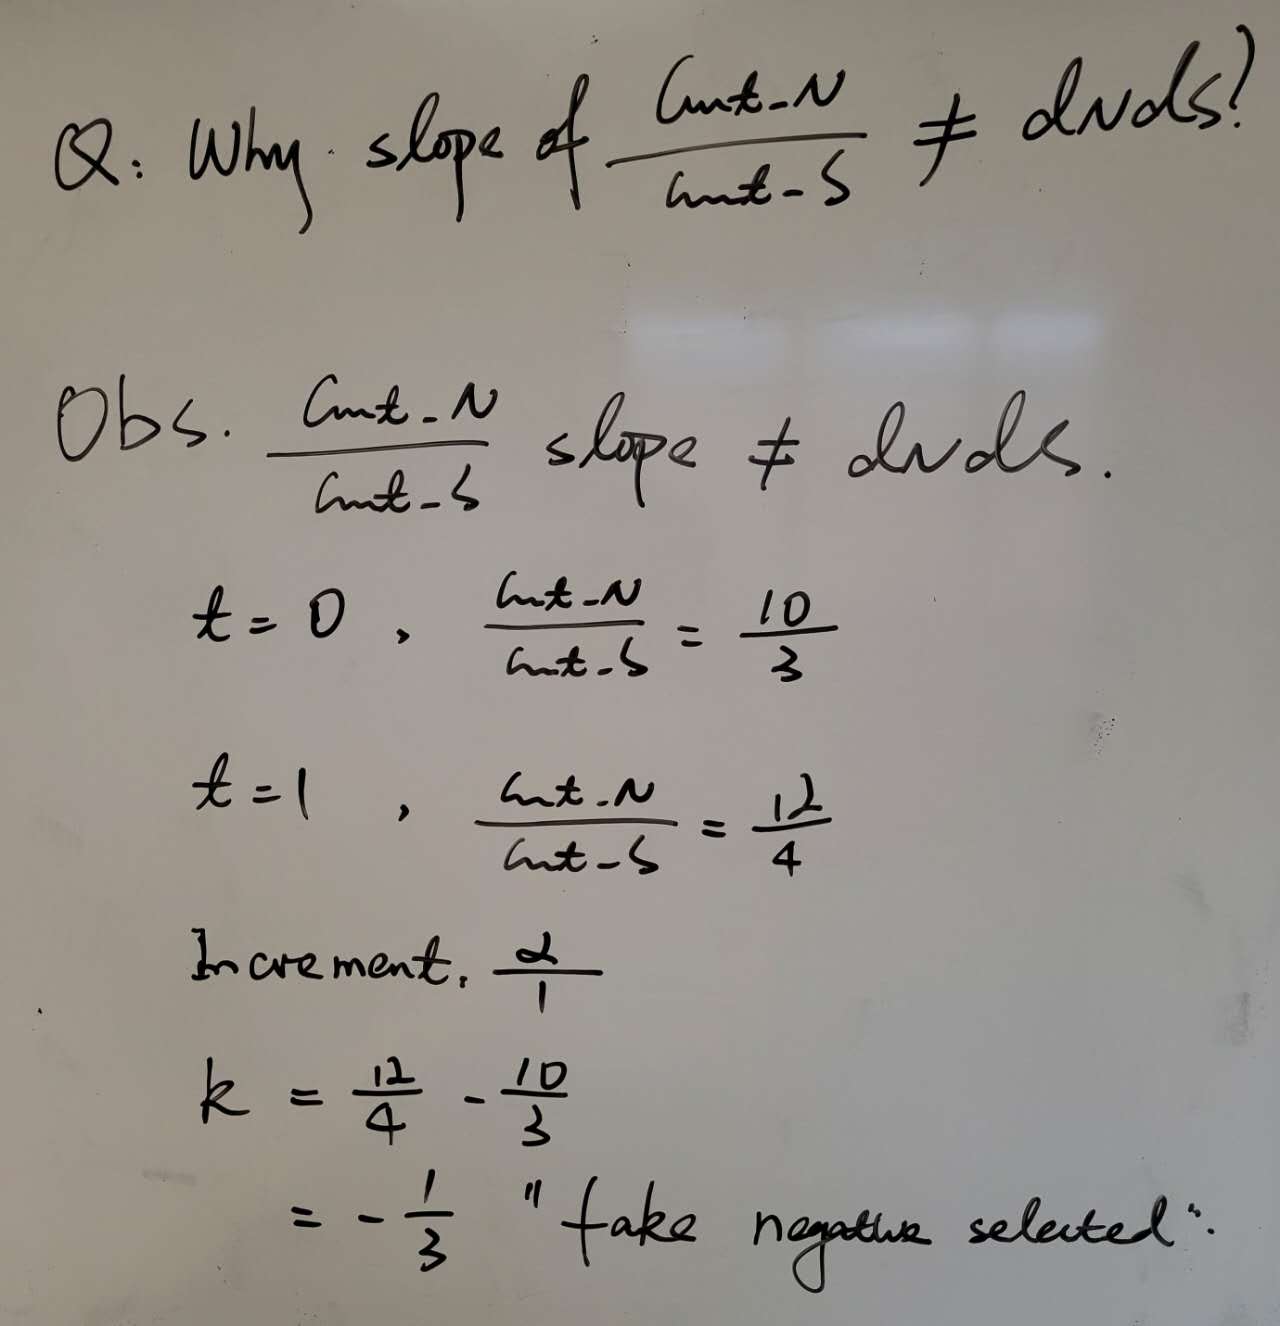 Q: Why slope of Cnt-N / Cnt-S ≠ dNdS?
Obs. Cnt-N / Cnt-S slope ≠ dNdS.
t = 0 , Cnt-N / Cnt-S = 10 / 3
t = 1 , Cnt-N / Cnt-S = 12 / 4
Increment. 2 / 1
k = 12 / 4 - 10 / 3
= - 1 / 3 "fake negative selected".